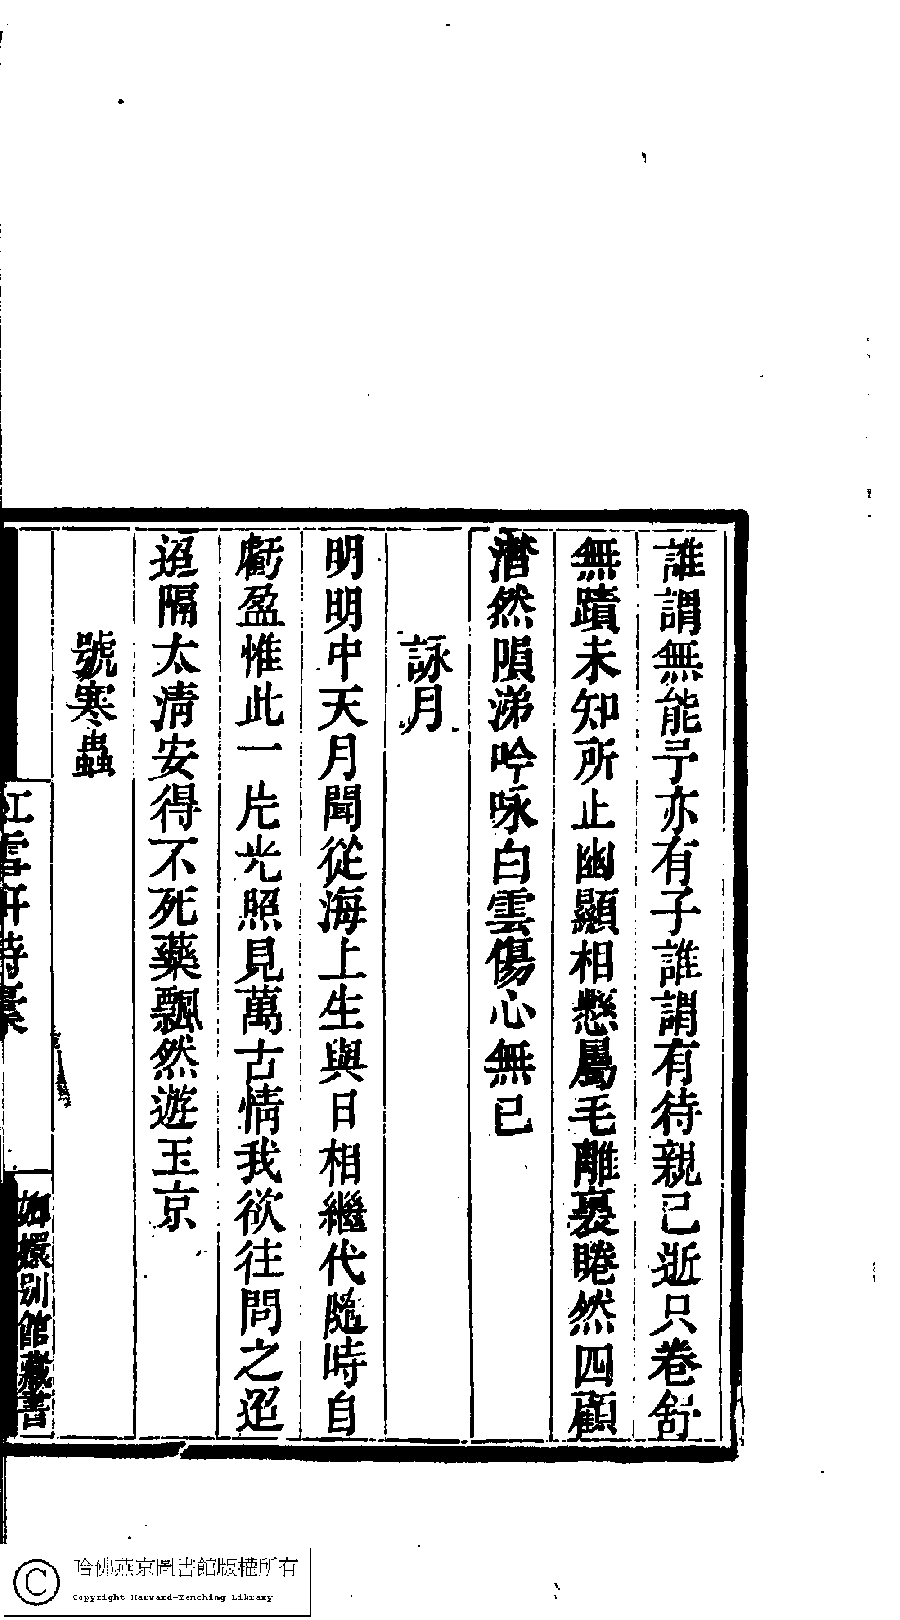 誰謂無能予亦有子誰謂有待親已逝只卷舒
無蹟未知所止幽顯相懸屬毛離裏睠然四顧
潸然隕涕吟咏白雲傷心無已
詠月
明明中天月聞從海上生與日相繼代隨時自
虧盈惟此一片光照見萬古情我欲往問之迢
迢隔太淸安得不死藥飄然遊玉京
號寒蟲
紅雪軒詩稾
嫏嬛别館藏書
哈佛燕京圖書館版權所有
Copyright Harvard-Yenching Library